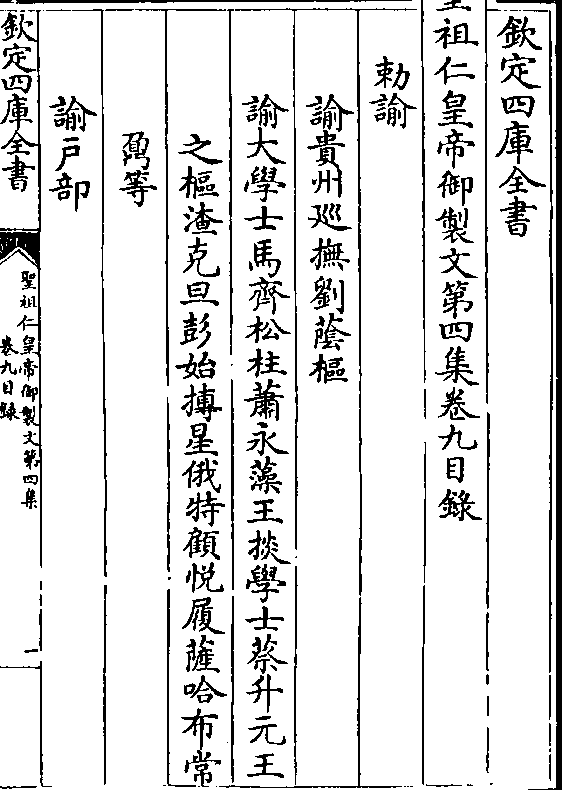 欽定四庫全書
聖祖仁皇帝御製文第四集卷九目錄
勅諭
諭貴州廵撫劉蔭樞
諭大學士馬齊松柱蕭永藻王掞學士蔡升元王
之樞渣克旦彭始摶星俄特顧悅履薩哈布常
鼐等
諭戸部
欽定四庫全書
聖祖仁皇帝御製文第四集
卷九目錄
一